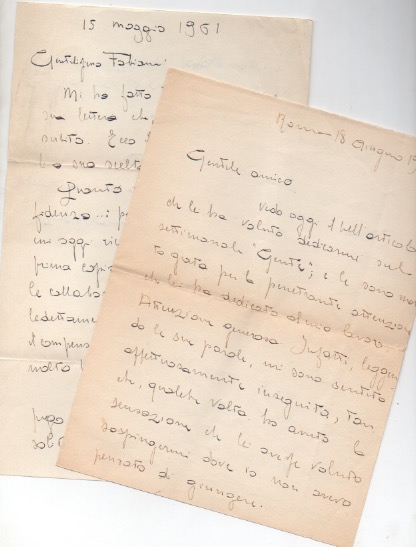 15 maggio 1961
Gentilissimo Fabiani:
Mi ha fatto
sua lettera che,
subito. Ecco
ha sua scelta
Quanto
fidenza...: p
mi oggi
prima copia
le collabo
lettamente
il compenso
molto
Roma 18 Giugno 19
Gentile amico.
Vedo oggi il bell'articolo
che le ha voluto dedicarmi sul
settimanale "Gente"; e le sono mol
to grata per la penetrante attenzione
che le ha dedicato al mio lavoro.
Attenzione generosa. Infatti, leggen
do le sue parole, mi sono sentita
affettuosamente inseguita, tan
to che, qualche volta ho avuto la
sensazione che le avesse voluto
sospingermi dove io non avevo
pensato di giungere.